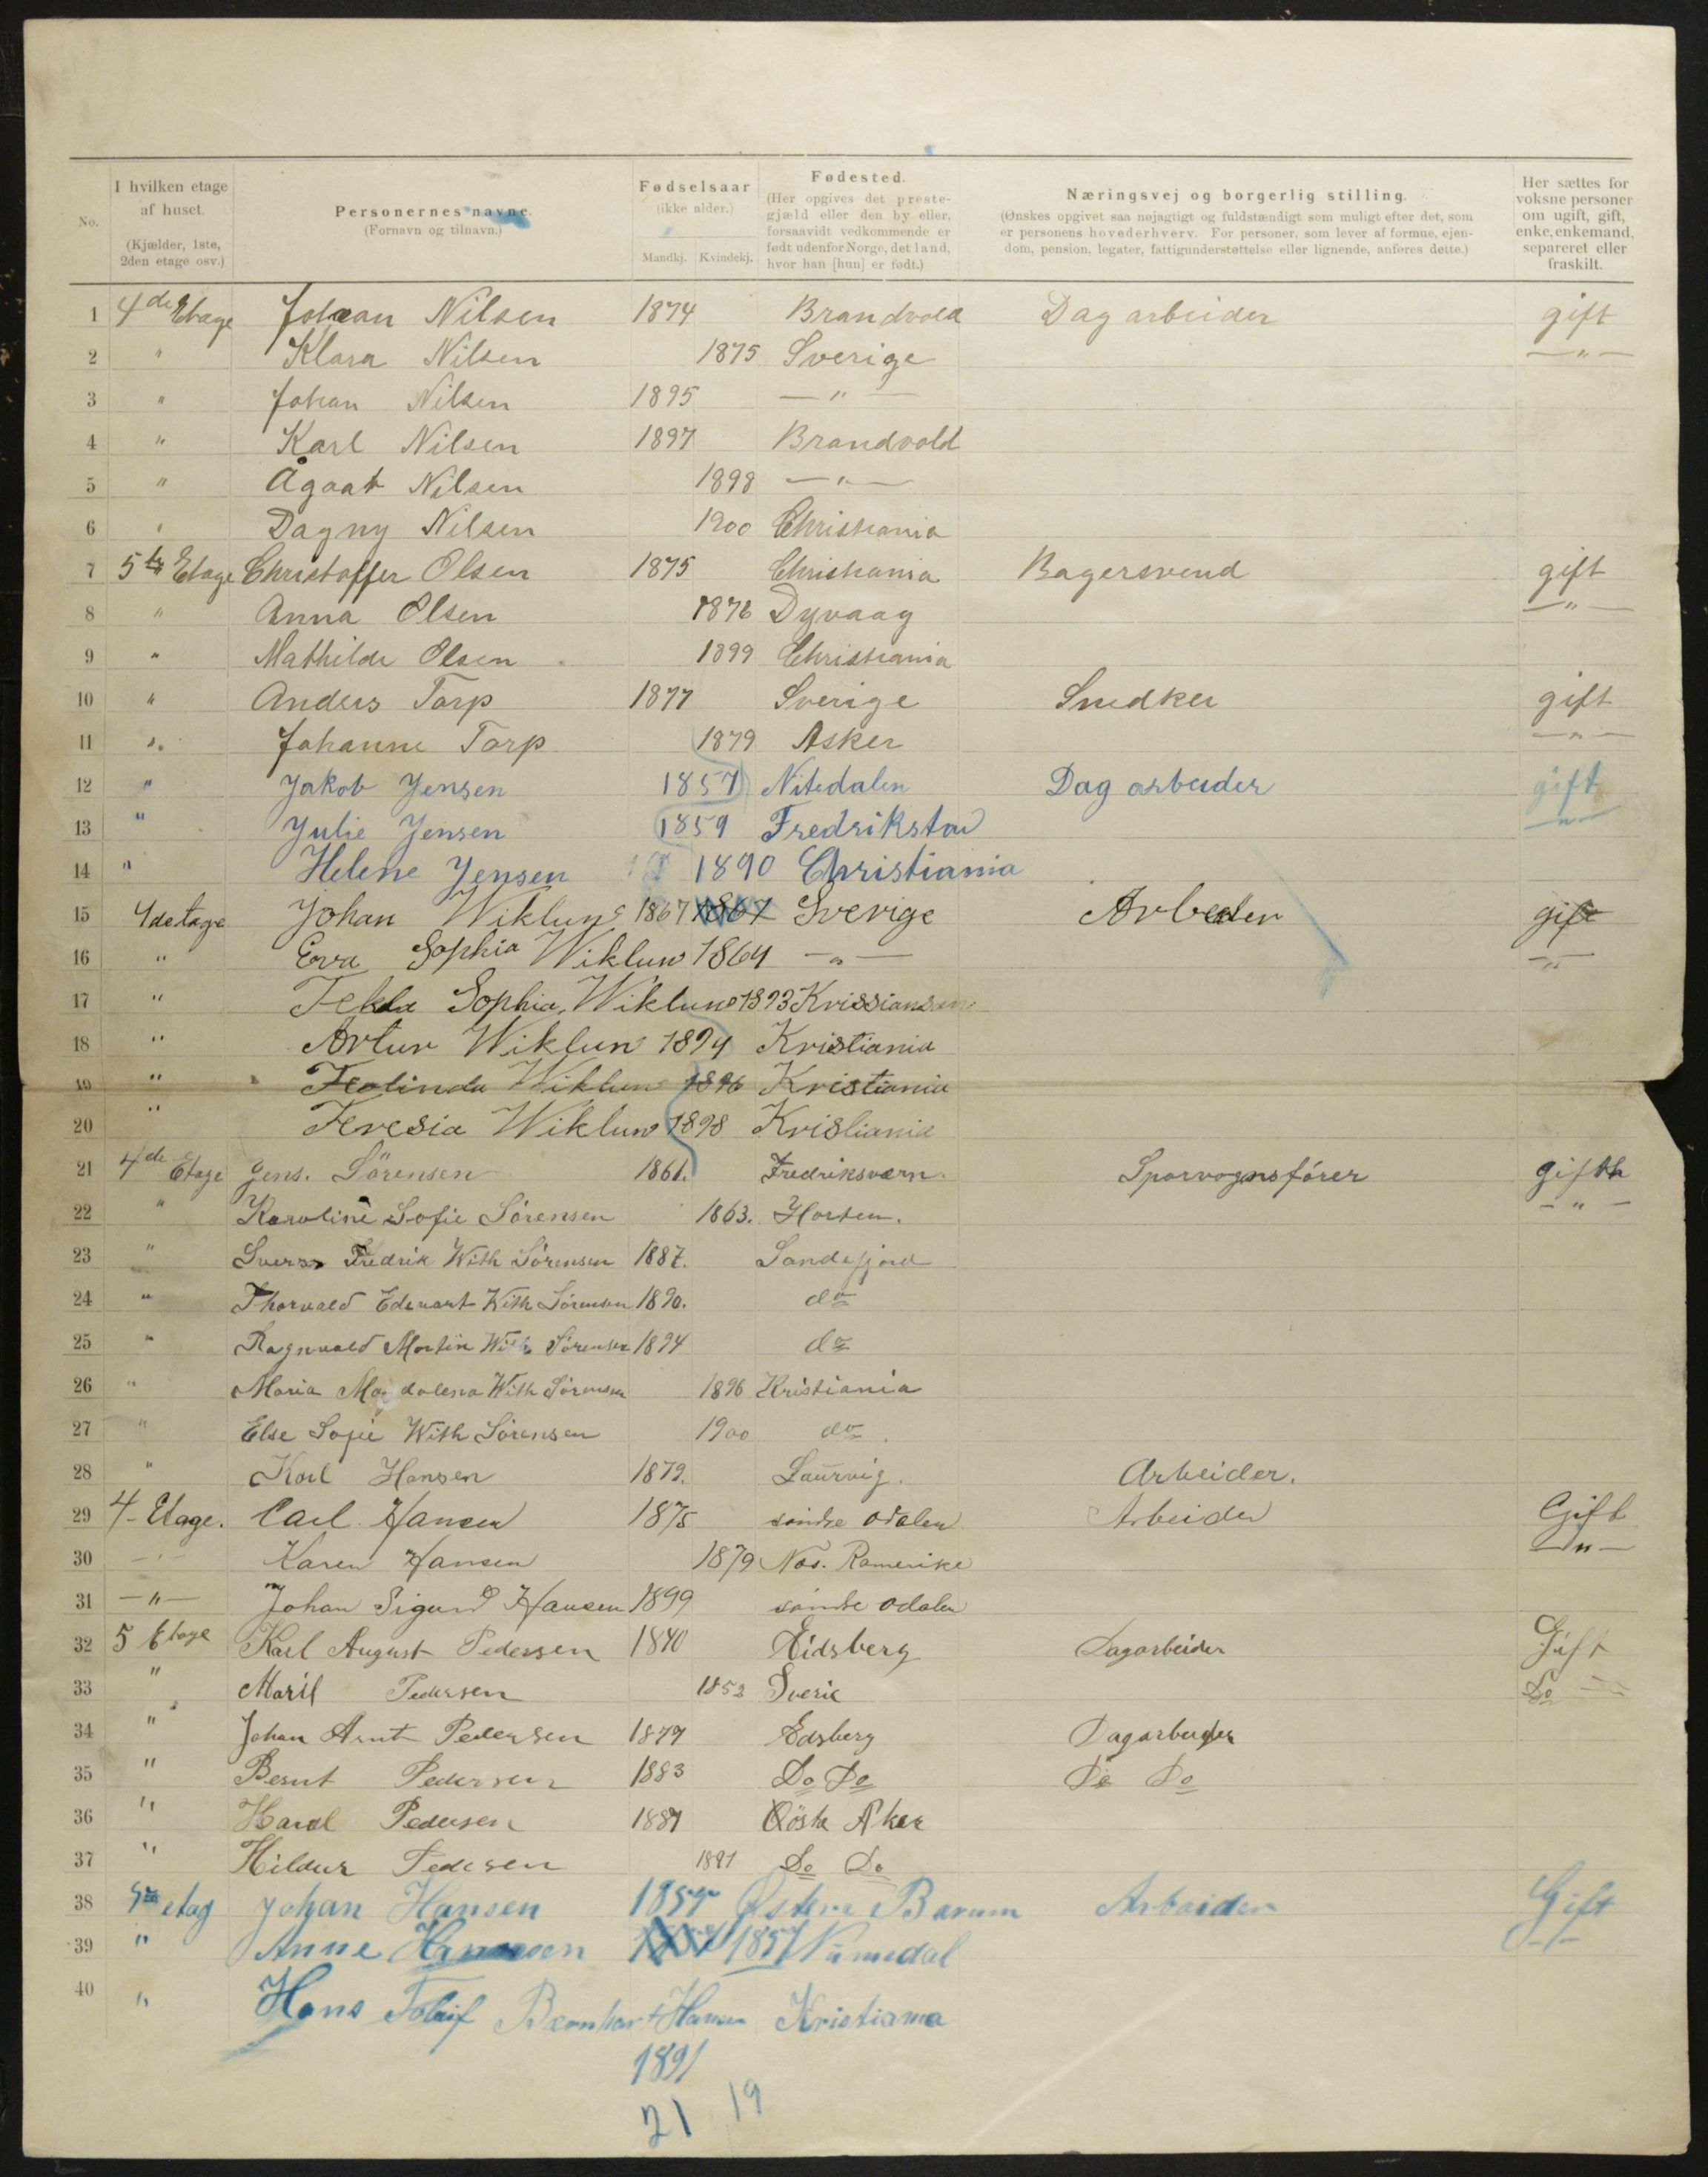 No.
I hvilken etage af huset. (Kjælder, 1ste, 2den etage osv.)
Personernes navne. (Fornavn og tilnavn.)
Fødselsaar (ikke alder.) Mandkj. Kvindekj.
Fødested. (Her opgives det prestegjæld eller den by eller, forsaavidt vedkommende er født udenfor Norge, det land, hvor han [hun] er født.)
Næringsvej og borgerlig stilling. (Ønskes opgivet saa nøjagtigt og fuldstændigt som muligt efter det, som er personens hovederhverv. For personer, som lever af formue, ejendom, pension, legater, fattigunderstøttelse eller lignende, anføres dette.)
Her sættes for voksne personer om ugift, gift, enke, enkemand, separeret eller fraskilt.
1 4de Etage Johan Nilsen 1874 Brandvold Dagarbeider gift
2 " Klara Nilsen 1875 Sverige —"—
3 " Johan Nilsen 1895 —"—
4 " Karl Nilsen 1897 Brandvold
5 " Ågaat Nilsen 1898 —"—
6 " Dagny Nilsen 1900 Christiania
7 5te Etage Christoffer Olsen 1875 Christiania Bagersvend gift
8 " Anna Olsen 1876 Dyvaag —"—
9 " Mathilde Olsen 1899 Christiania
10 " Anders Torp 1877 Sverige Snedker gift
11 " Johanne Torp 1879 Asker —"—
12 " Jakob Jensen 1857 Nitedalen Dag arbeider gift
13 " Julie Jensen 1859 Fredrikstad —"—
14 " Helene Jensen 1890 Christiania
15 4de tage Johan Wiklund 1867 1867 Sverige Arbeider gift
16 " Eva Sophia Wiklund 1864 —"— —"—
17 " Tekla Sophia Wiklund 1893
18 " Artur Wiklun 1894 Kristiania
19 " Wiklun 1896 Kristiania
20 " Teresia Wiklund 1898 Kristiania
21 4de Etage Jens. Sörensen 1861. Fredriksværn. Sporvognsfører gifth
22 " Karoline Sofie Sörensen 1863. Horten. —"—
23 " Sverre Fredrik With Sörensen 1887. Sandefjord
24 " Thorvald Edvart With Sörensen 1890. do
25 " Ragnvald Martin With Sörensen 1894 do
26 " Maria Magdalena With Sörensen 1896 Kristiania
27 " Else Sofie With Sörensen 1900 do.
28 " Karl Hansen 1879. Laurvig. Arbeider.
29 4- Etage. Carl Hansen 1875 söndre Odalen Arbeider Gift
30 —"— Karen Hansen 1879 Nos. Romerike —"—
31 —"— Johan Sigurd Hansen 1899 söndre Odalen
32 5 Etage Karl August Pedersen 1840 Eidsberg Dagarbeider Gift
33 " Marit Pedersen 1852 Sverie Do
34 " Johan Arnt Pedersen 1879 Edsberg Dagarbeider
35 " Bernt Pedersen 1883 Do Do Do Do
36 " Pedersen 1887 Aker
37 " Hildur Pedersen 1891 Do Do
38 5te etag Johan Hansen Østere Barum Arbeider Gift
39 " Anne Hansen 1857 —"—
40 " Hans Hansen Kristiania
1891
21 19